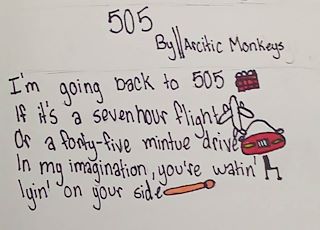 505
By || Arcitic Monkeys
I'm going back to 505
If it's a sevenhour flight
Or a forty-five mintue drive
In my imagination, you're watin'
lyin' on your side